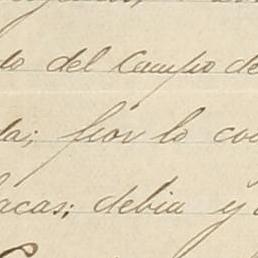 do del Campo de
da; por lo co
acas; debia y